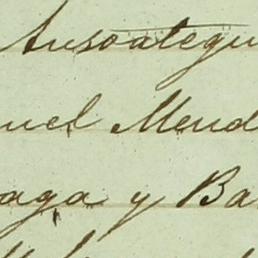 Ansoategu
uel Mend
aga y Ba